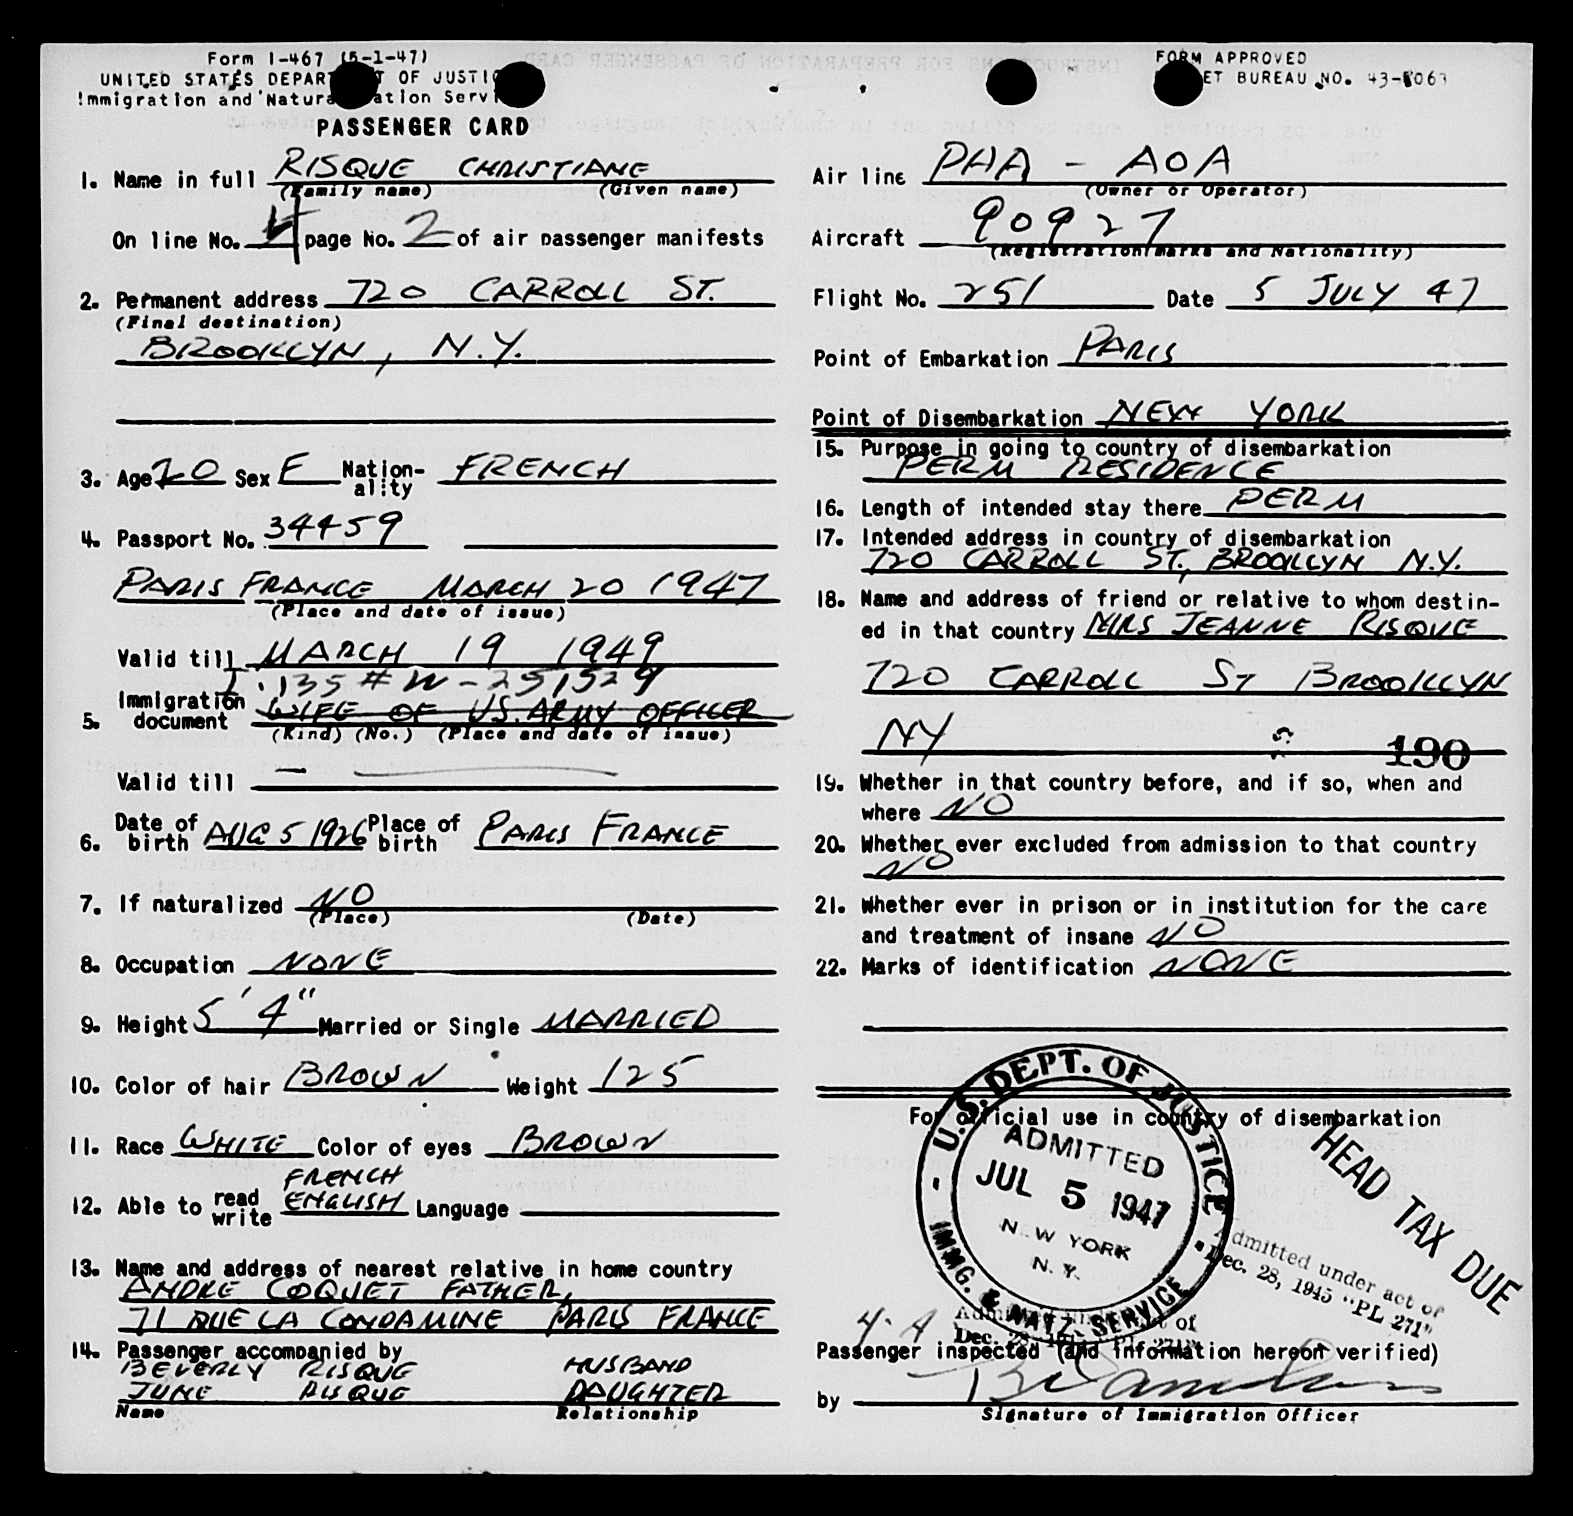 Form I-467 (5-1-47)
UNITED STATES DEPARTMENT OF JUSTICE
Immigration and Naturalization Service
PASSENGER CARD
1. Name in full RISQUE CHRISTIANE
(Family name) (Given name)
On line No. 4 page No. 2 of air passenger manifests
2. Permanent address 720 CARROLL ST.
(Final destination)
BROOKLYN, N.Y.
3. Age 20 Sex F Nation-ality FRENCH
4. Passport No. 34459
PARIS FRANCE MARCH 20 1947
(Place and date of issue)
Valid till MARCH 19 1949
I.135 # W-251529
5. Immigration document WIFE OF U.S. ARMY OFFICER
(Kind) (No.) (Place and date of issue)
Valid till —
6. Date of birth AUG 5 1926 Place of birth PARIS FRANCE
7. If naturalized NO
(Place) (Date)
8. Occupation NONE
9. Height 5' 4" Married or Single MARRIED
10. Color of hair BROWN Weight 125
11. Race WHITE Color of eyes BROWN
FRENCH
12. Able to read write ENGLISH Language
13. Name and address of nearest relative in home country
ANDRE COQUET FATHER,
71 RUE LA CONDAMINE PARIS FRANCE
14. Passenger accompanied by
BEVERLY RISQUE HUSBAND
JUNE RISQUE DAUGHTER
Name Relationship
FORM APPROVED
BUDGET BUREAU NO. 43-R063
Air line PAA - AOA
(Owner or Operator)
Aircraft 90927
(Registration marks and Nationality)
Flight No. 251 Date 5 JULY 47
Point of Embarkation PARIS
Point of Disembarkation NEW YORK
15. Purpose in going to country of disembarkation
PERM RESIDENCE
16. Length of intended stay there PERM
17. Intended address in country of disembarkation
720 CARROLL ST., BROOKLYN N.Y.
18. Name and address of friend or relative to whom destin-
ed in that country MRS JEANNE RISQUE
720 CARROLL ST BROOKLYN
NY 190
19. Whether in that country before, and if so, when and
where NO
20. Whether ever excluded from admission to that country
NO
21. Whether ever in prison or in institution for the care
and treatment of insane NO
22. Marks of identification NONE
For official use in country of disembarkation
U.S. DEPT. OF JUSTICE
ADMITTED
JUL 5 1947
NEW YORK
N.Y.
IMMG. & NATZ. SERVICE
HEAD TAX DUE
Admitted under act of
Dec. 28, 1945 "PL 271"
4-A
Admitted under act of
Dec. 28, 1945 "PL 271"
Passenger inspected (and information hereon verified)
by
Signature of Immigration Officer